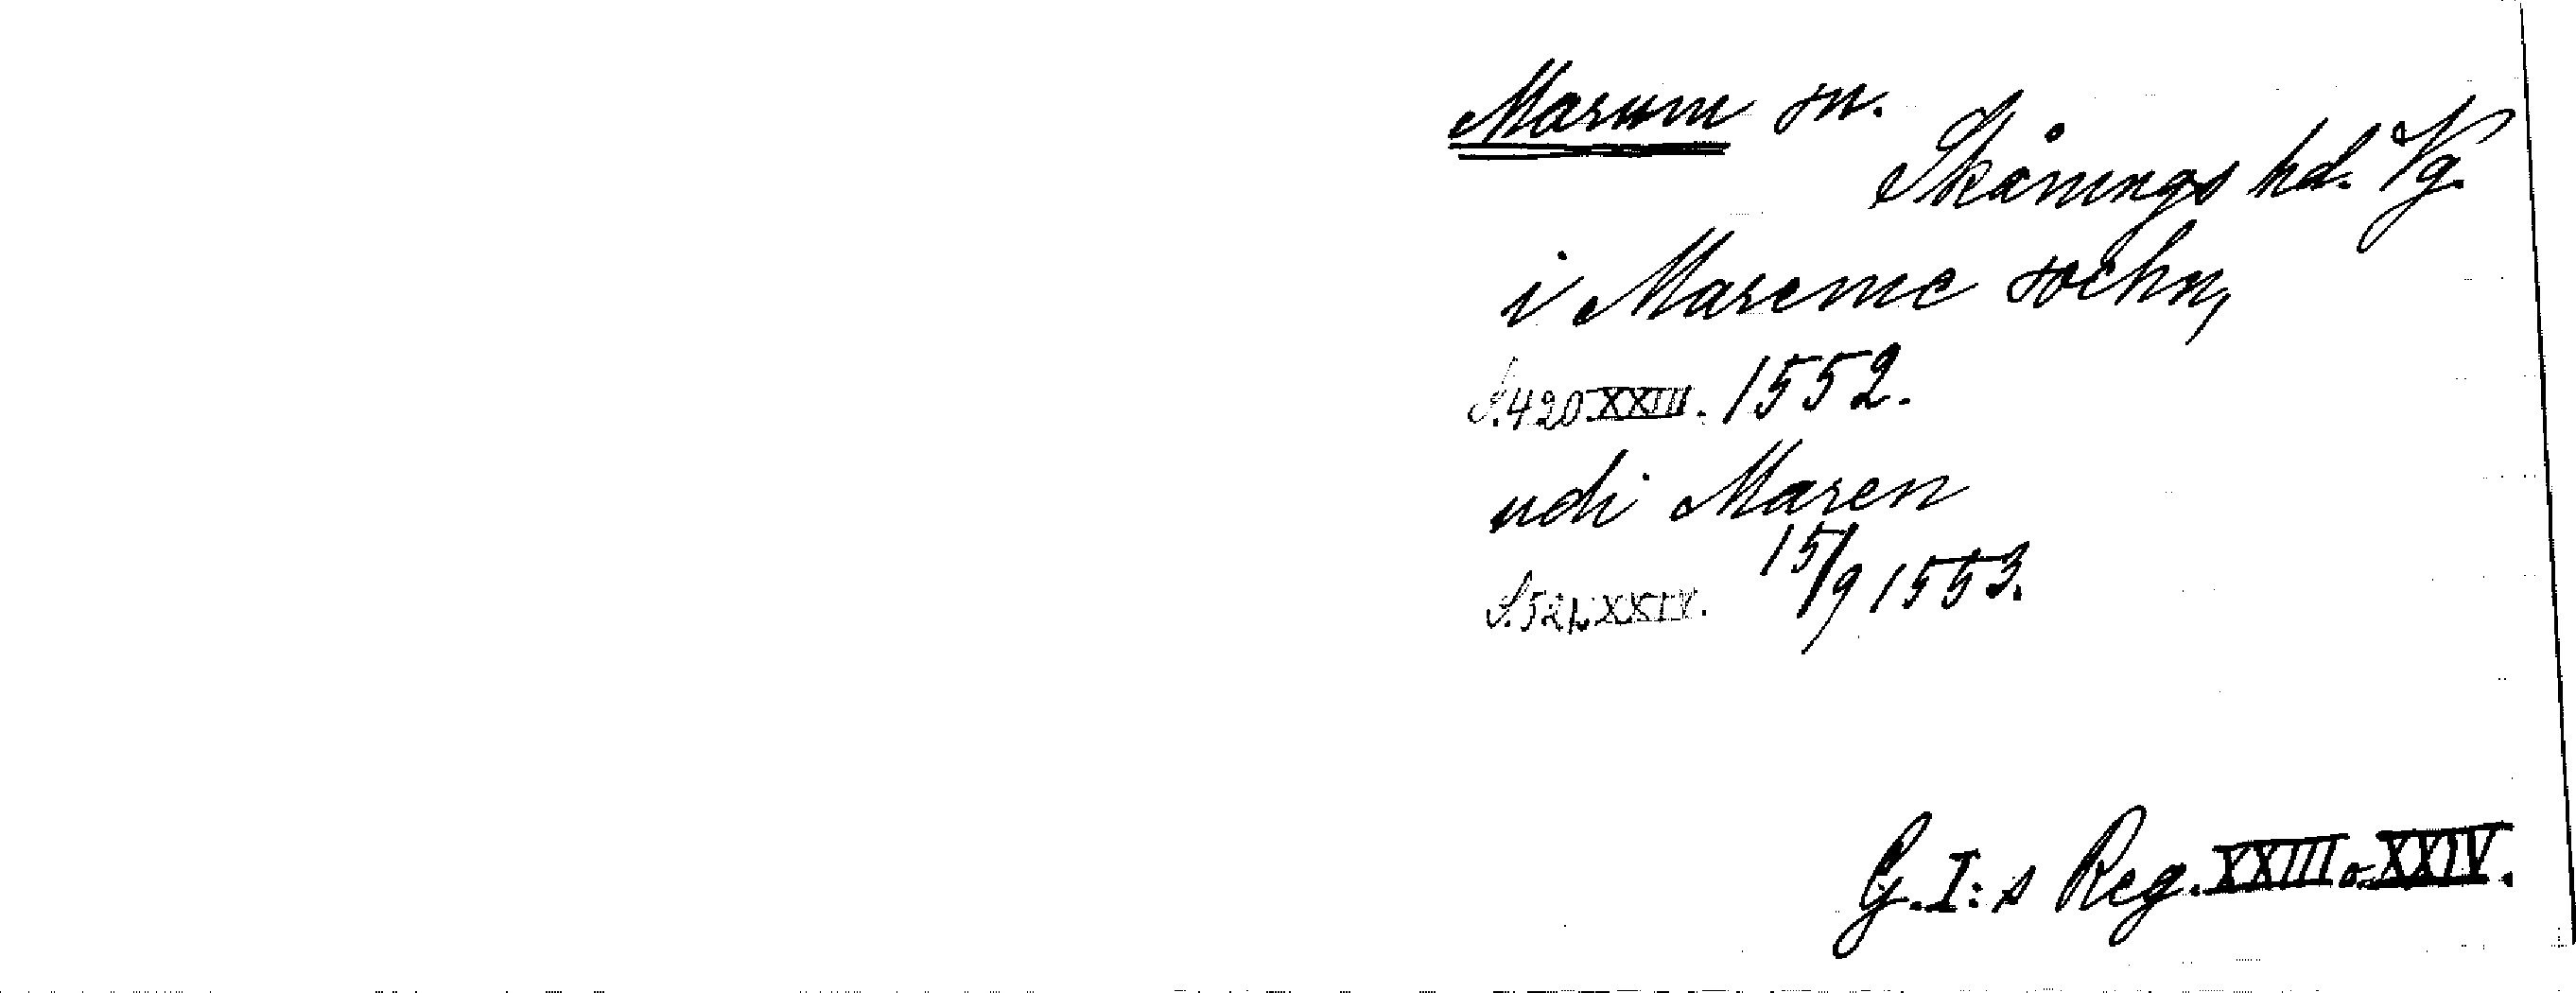 Marum sn.
Skånings hd. Vg.
i Mareme sochn,
S. 420 XXIII. 1552.
udi Maren
S. 521. XXIV. 15/9 1553.
G. I:s Reg. XXIII o. XXIV.